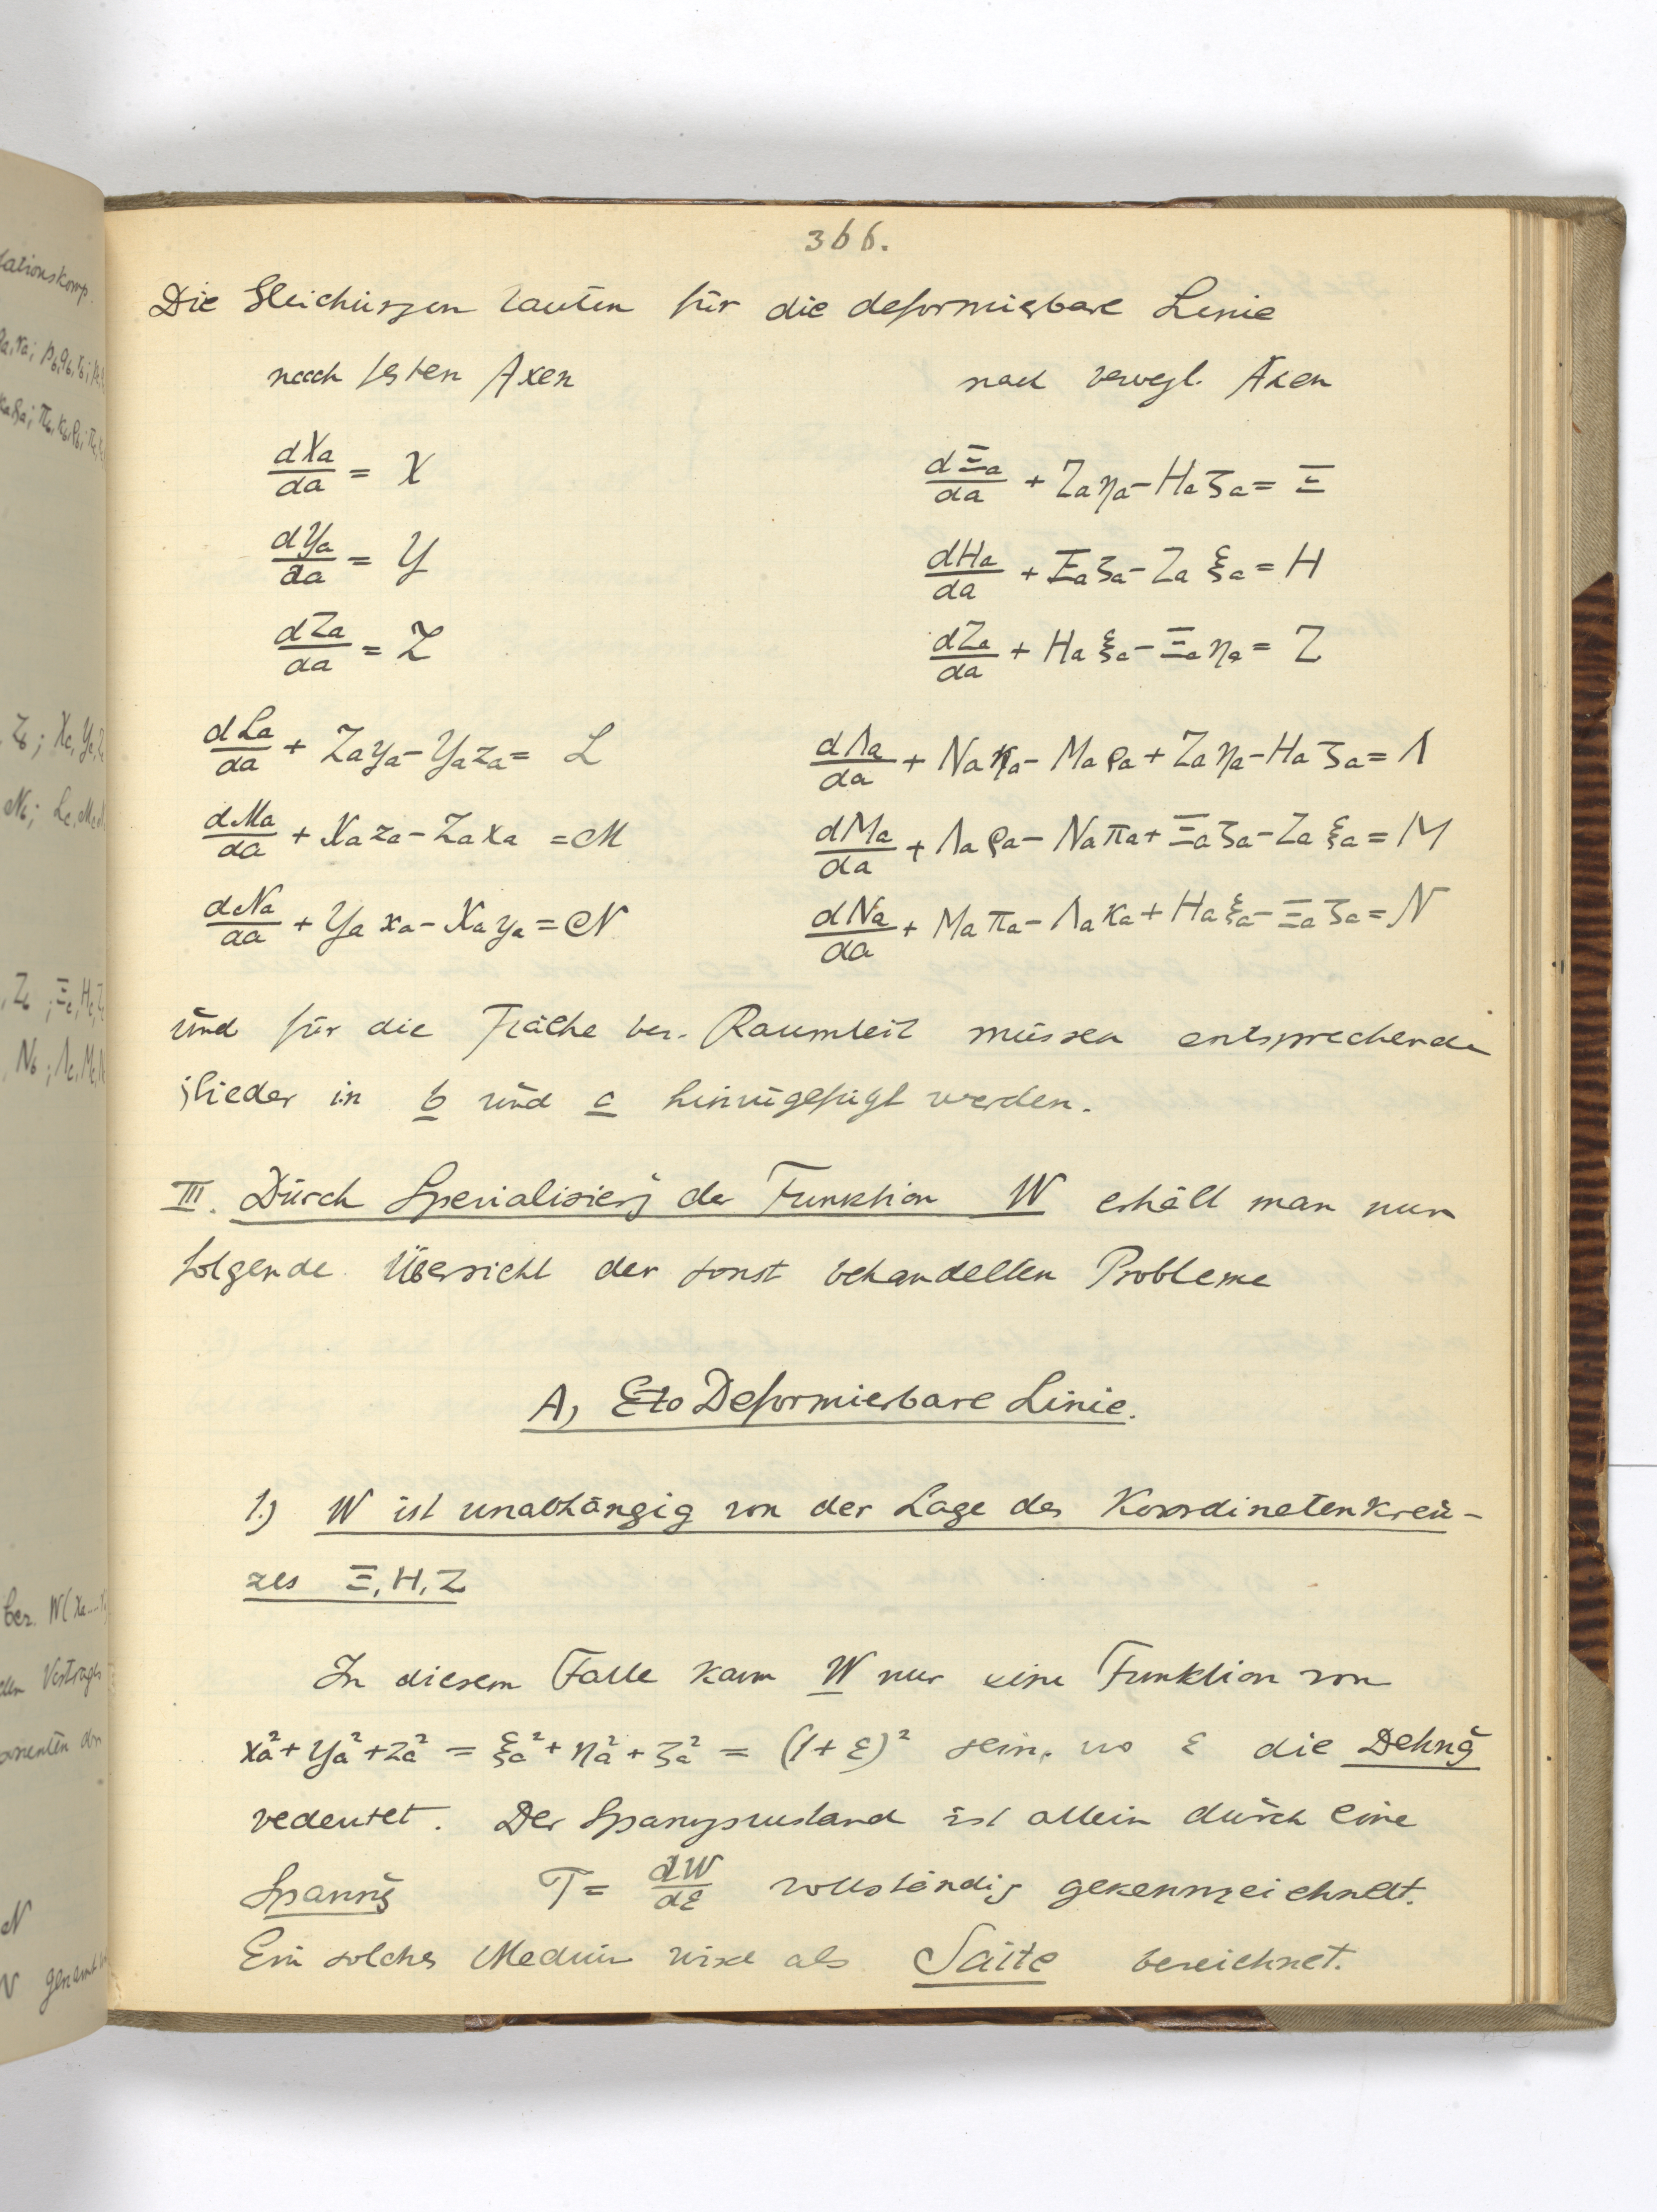 366.
Die Gleichungen lauten für die deformierbare Linie
nach festen Axen nach bewegl. Axen
dXa/da = X dΞa/da + Zaηa - Haζa = Ξ
dYa/da = Y dHa/da + Ξaζa - Zaξa = H
dZa/da = Z dZa/da + Haξa - Ξaηa = Z
dLa/da + Zaya - Yaza = L dΛa/da + Naκa - Maρa + Zaηa - Haζa = Λ
dMa/da + Xaza - Zaxa = M dMa/da + Λaρa - Naπa + Ξaζa - Zaξa = M
dNa/da + Yaxa - Xaya = N dNa/da + Maπa - Λaκa + Haξa - Ξaζa = N
und für die Fläche bez. Raumteil müssen entsprechende
Glieder in b und c hinzugefügt werden.
III. Durch Spezialisierg der Funktion W erhält man nun
folgende Übersicht der sonst behandelten Probleme
A, Deformierbare Linie.
1.) W ist unabhängig von der Lage des Koordinatenkreu-
zes Ξ, H, Z
In diesem Falle kann W nur eine Funktion von
xa² + ya² + za² = ξa² + ηa² + ζa² = (1 + ε)² sein, wo ε die Dehng
bedeutet. Der Spangszustand ist allein durch eine
Spanng T = dW/dε vollständig gekennzeichnet.
Ein solches Medium wird als Saite bezeichnet.